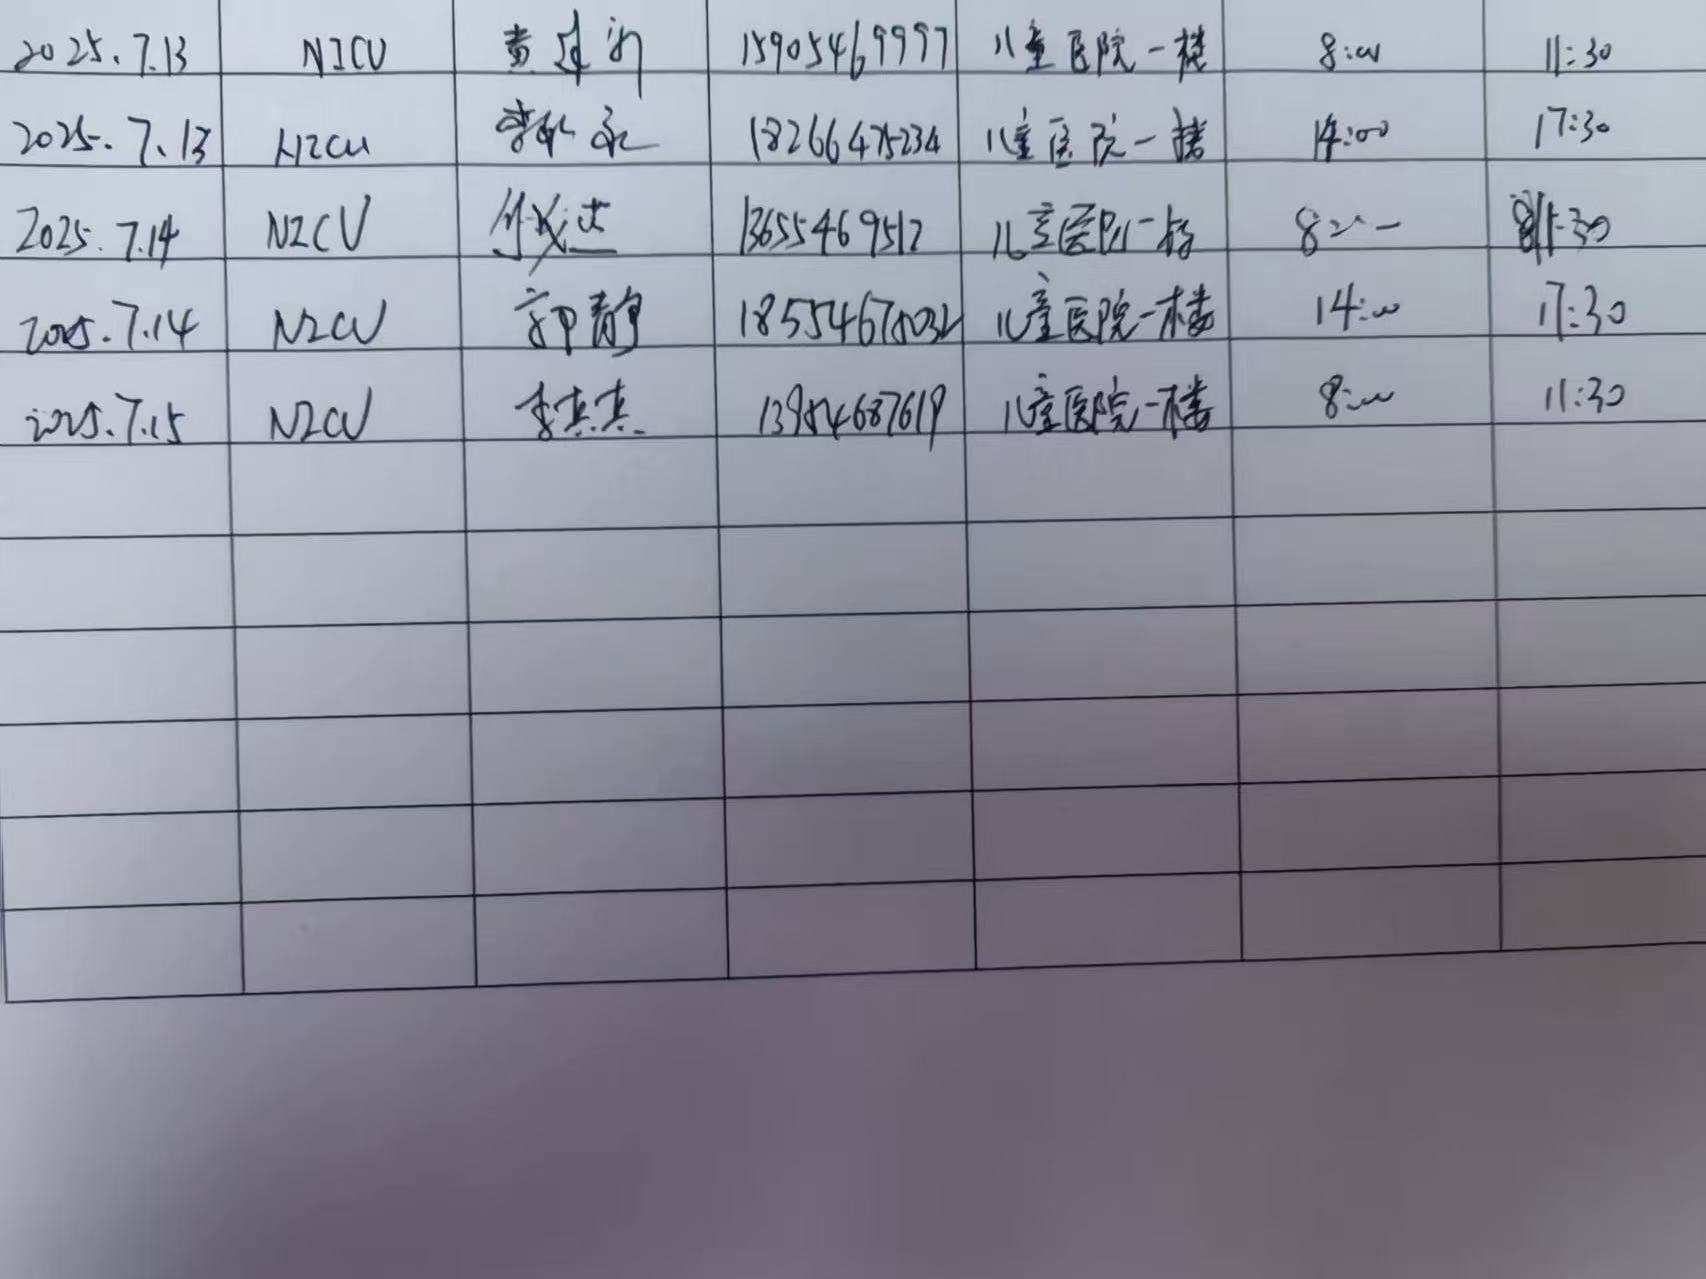 2025.7.13 NICU 黄 15905469997 儿童医院一楼 8:00 11:30
2025.7.13 NICU 18266475234 儿童医院一楼 14:00 17:30
2025.7.14 NICU 13655469512 儿童医院一楼 8:00 11:30
2025.7.14 NICU 郭静 儿童医院一楼 14:00 17:30
2025.7.15 NICU 李真真 儿童医院一楼 8:00 11:30